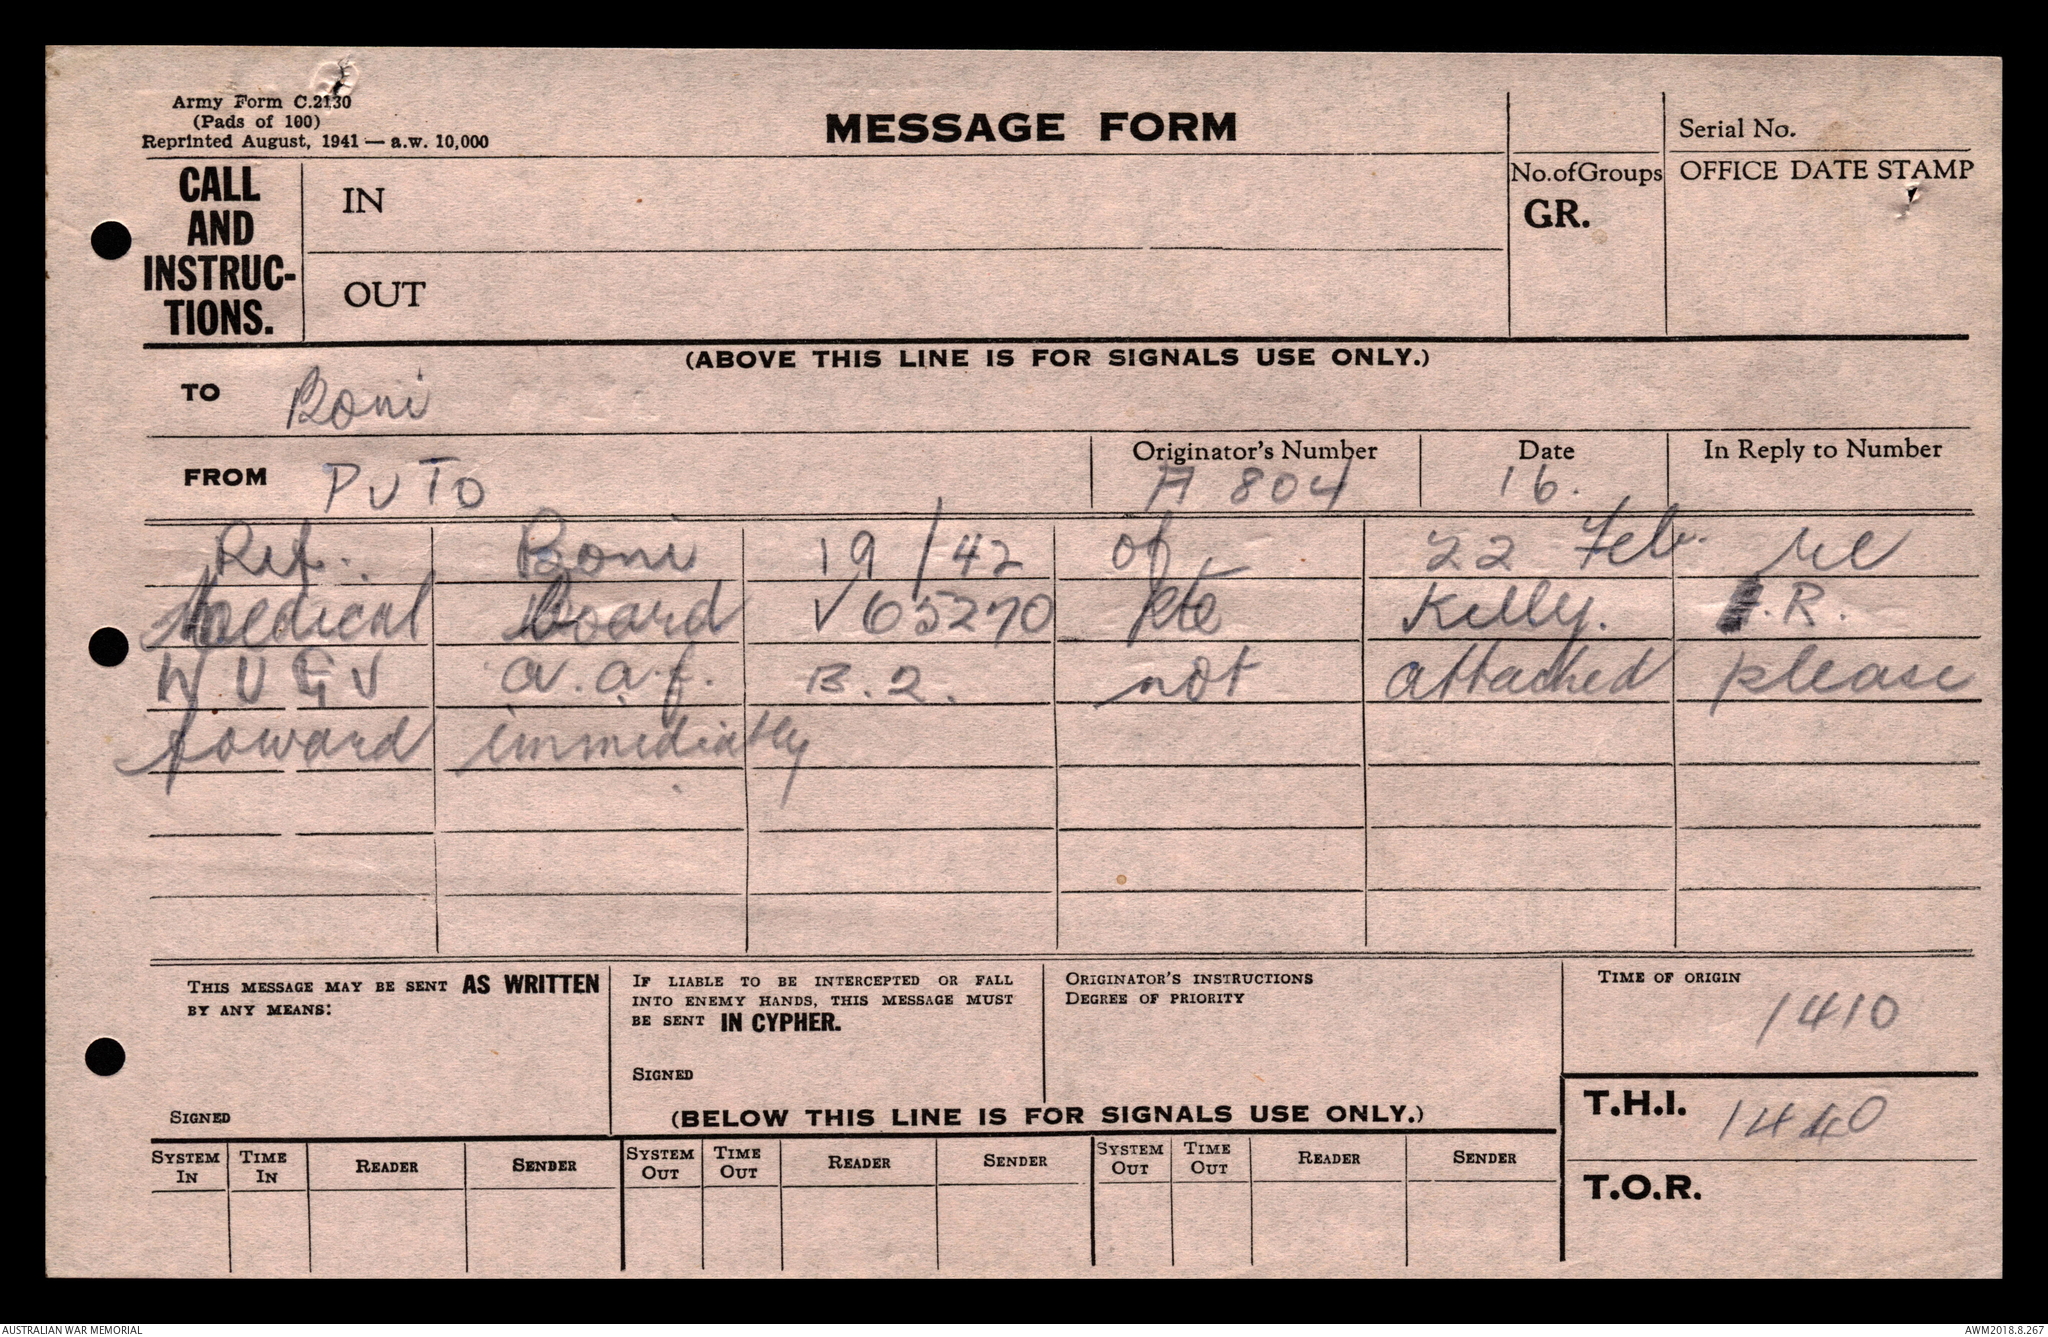 Army Form C.2130
(Pads of 100)
Reprinted August, 1941 — a.w. 10,000
MESSAGE FORM
Serial No.
CALL AND INSTRUC-TIONS.
IN
OUT
No. of Groups
GR.
OFFICE DATE STAMP
(ABOVE THIS LINE IS FOR SIGNALS USE ONLY.)
TO Boni
FROM PUTO
Originator's Number A 804
Date 16.
In Reply to Number
Ref. Boni 19/42 of 22 Feb. re
Medical Board V65270 pte Kelly. .R.
a.a.f. B.2. not attached please
foward immediatly
THIS MESSAGE MAY BE SENT AS WRITTEN
BY ANY MEANS:
SIGNED
IF LIABLE TO BE INTERCEPTED OR FALL
INTO ENEMY HANDS, THIS MESSAGE MUST
BE SENT IN CYPHER.
SIGNED
ORIGINATOR'S INSTRUCTIONS
DEGREE OF PRIORITY
TIME OF ORIGIN
1410
T.H.I. 1440
T.O.R.
(BELOW THIS LINE IS FOR SIGNALS USE ONLY.)
SYSTEM IN TIME IN READER SENDER SYSTEM OUT TIME OUT READER SENDER SYSTEM OUT TIME OUT READER SENDER
AUSTRALIAN WAR MEMORIAL
AWM2018.8.267